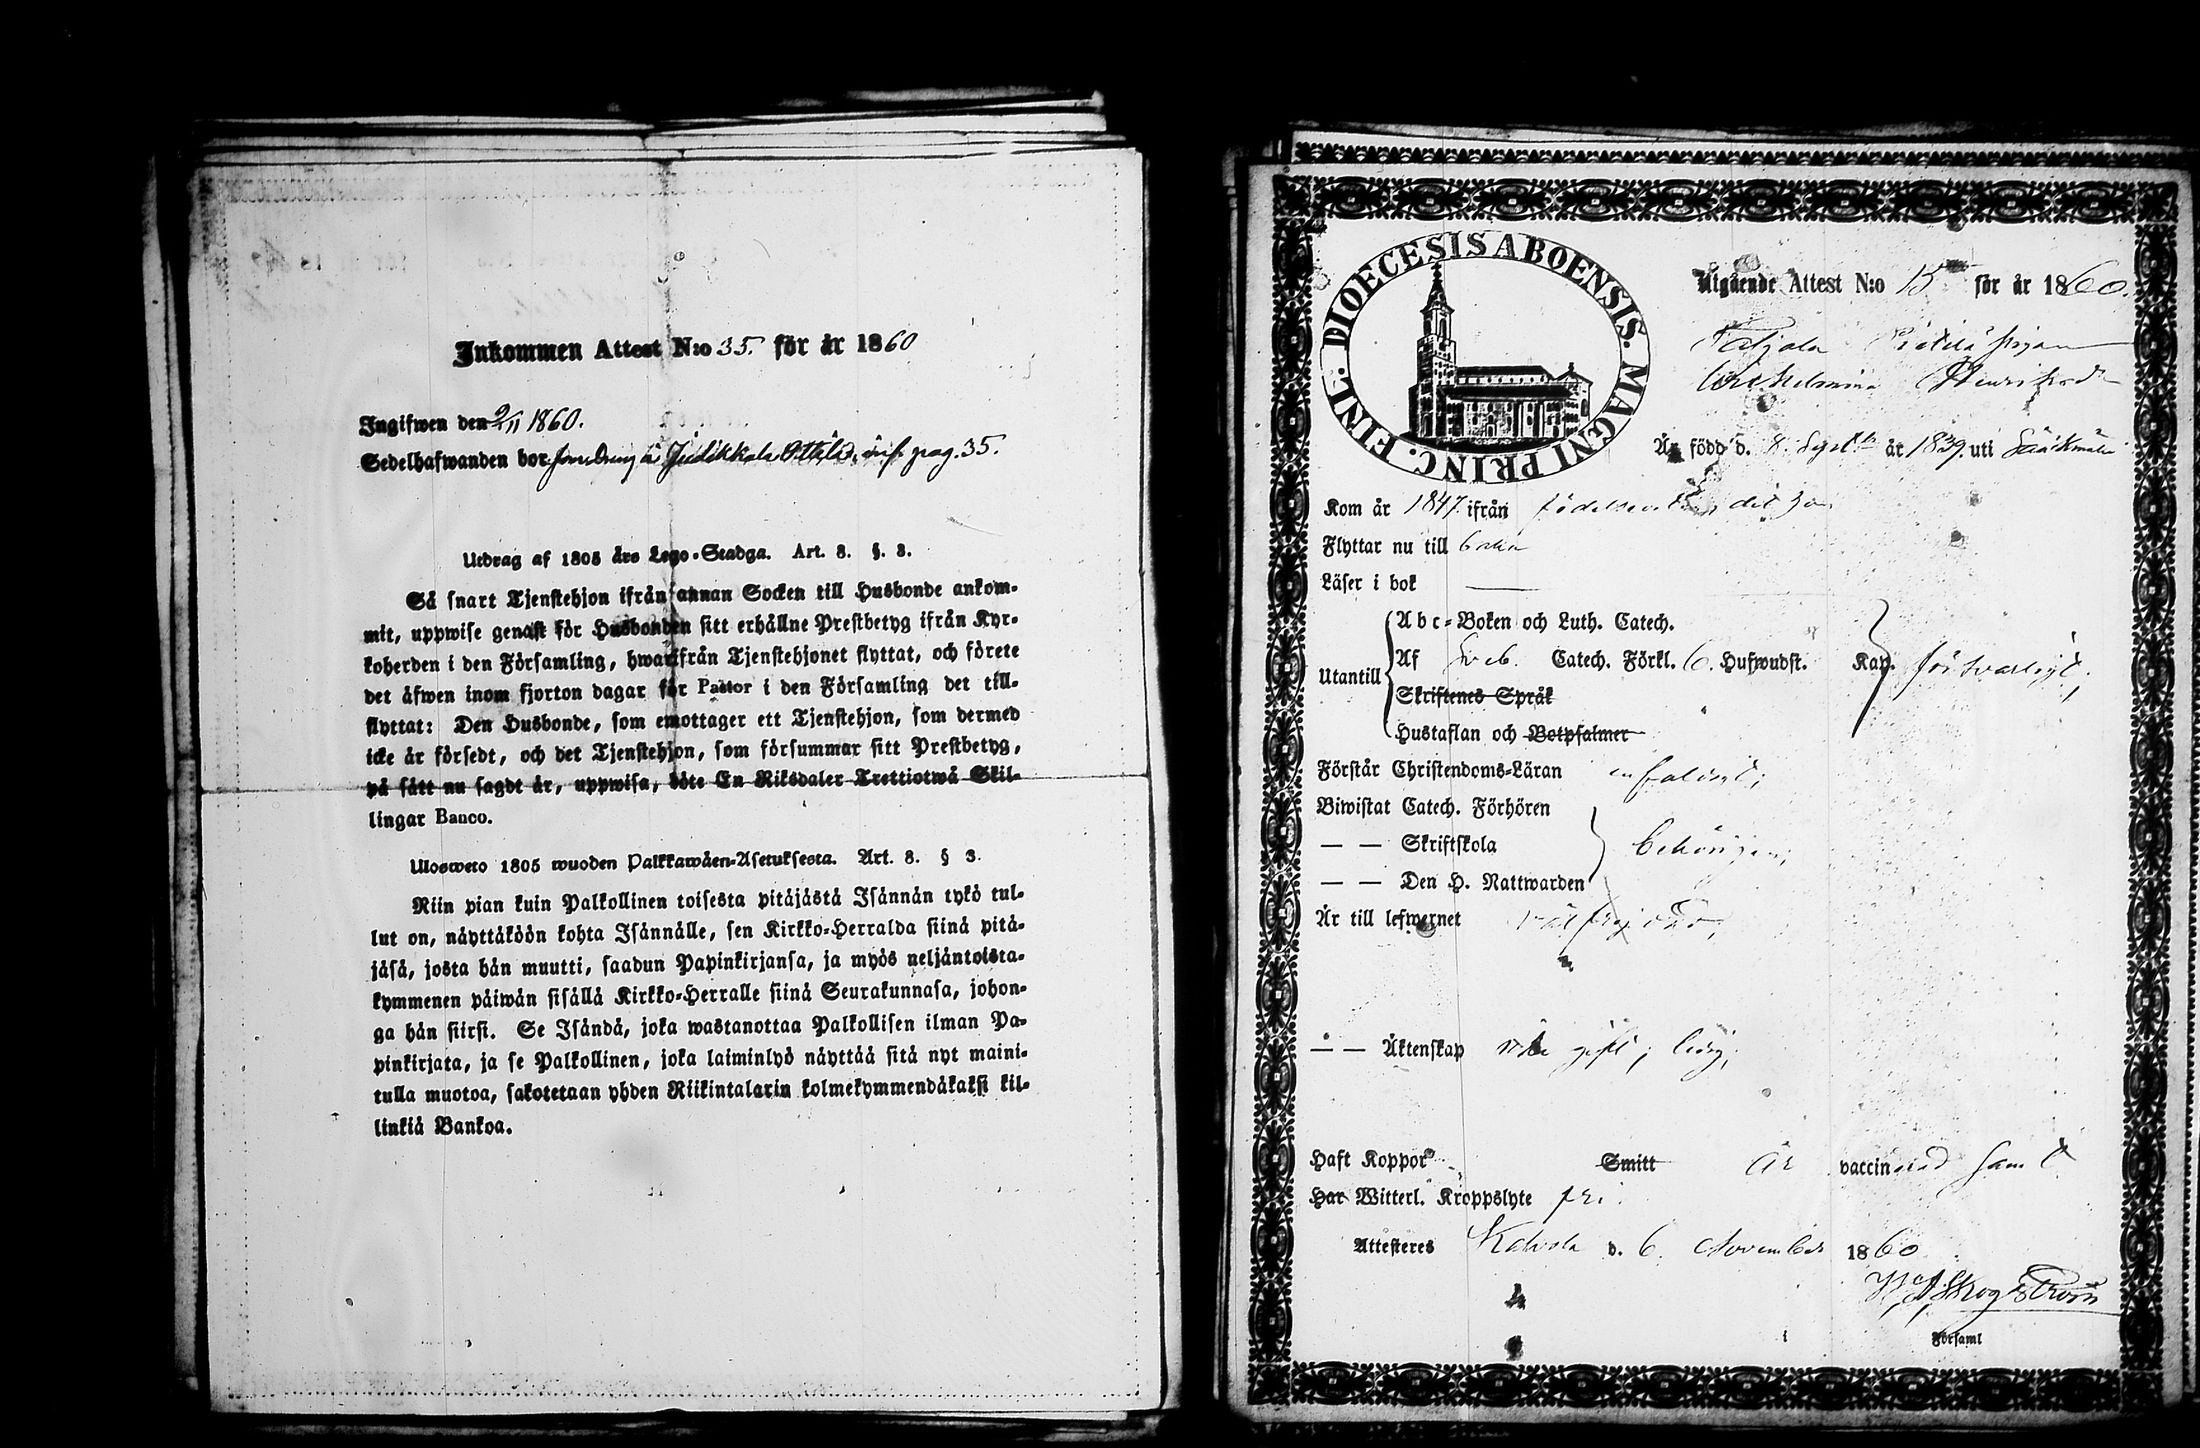 Inkommen Attest N:o 35. för år 1860
Ingifwen den 9/11 1860.
Sedelhafwanden bor å Jutikkala pag. 35.
Utdrag af 1805 års Lego-Stadga. Art. 8. §. 3.
Så snart Tjenstehjon ifrån annan Socken till Husbonde ankom-
mit, uppwise genast för Husbonden sitt erhållne Prestbetyg ifrån Kyr-
koherden i den Församling, hwarifrån Tjenstehjonet flyttat, och förete
det äfwen inom fjorton dagar för Pastor i den Församling det till-
flyttat: Den Husbonde, som emottager ett Tjenstehjon, som dermed
icke är försedt, och det Tjenstehjon, som försummar sitt Prestbetyg,
på sätt nu sagdt är, uppwisa, böte En Riksdaler Trettiotwå Skil-
lingar Banco.
Ulosweto 1805 wuoden Palkkawäen-Asetuksesta. Art. 8. § 3.
Niin pian kuin Palkollinen toisesta pitäjästä Isännän tykö tul-
lut on, näyttäköön kohta Isännälle, sen Kirkko-Herralda siinä pitä-
jäsä, josta hän muutti, saadun Papinkirjansa, ja myös neljäntoista-
kymmenen päiwän sisällä Kirkko-Herralle siinä Seurakunnasa, johon-
ga hän siirsi. Se Isändä, joka wastanottaa Palkollisen ilman Pa-
pinkirjata, ja se Palkollinen, joka laiminlyö näyttää sitä nyt maini-
tulla muotoa, sakotetaan yhden Riikintalarin kolmekymmendäkaksi kil-
linkiä Bankoa.
DIOECESIS ABOENSIS. MAGNI PRINC. FINL.
Utgående Attest N:o 15 för år 1860.
Piga
Wilhelmina Henriksdr
Är född d. 8 Sept. år 1839. uti Sääksmäki
Kom år 1847. ifrån födelseorten
Flyttar nu till
Läser i bok —
Utantill
Abc-Boken och Luth. Catech.
Af Sveb. Catech. Förkl. 6. Hufwudst. Kap. försvarligt;
Skriftenes Språk
Hustaflan och Botpsalmer
Förstår Christendoms-Läran enfaldigt;
Biwistat Catech. Förhören
— — Skriftskola behörigen;
— — Den H. Nattwarden
Är till lefwernet välfrejdad;
— — Äktenskap icke gift; ledig;
Haft Koppor Smitt är vaccinerad samt
Har Witterl. Kroppslyte fri.
Attesteres Kalvola d. 6. November 1860
Skogström
i Församl